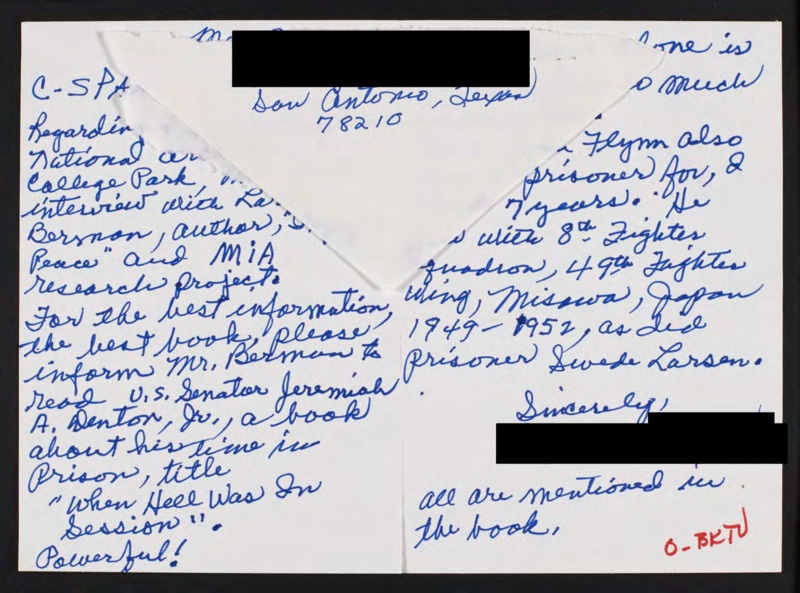 San Antonio, Texas
78210
C-SPA
Regardin
National ar
College Park, M
interview with La
Berman, author,
Peace" and MIA
research project.
For the best information,
the best book, please
inform Mr. Berman to
read U.S. Senator Jeremiah
A. Denton, Jr., a book
about his time in
Prison, title
"When Hell Was In
Session".
Powerful!
one is
o much
Flynn also
prisoner for, I
7 years. He
with 8th Fighter
quadron, 49th Fighter
Wing, Misawa, Japan
1949-1952, as did
prisoner Swede Larsen.
Sincerely,
all are mentioned in
the book.
O-BKTV